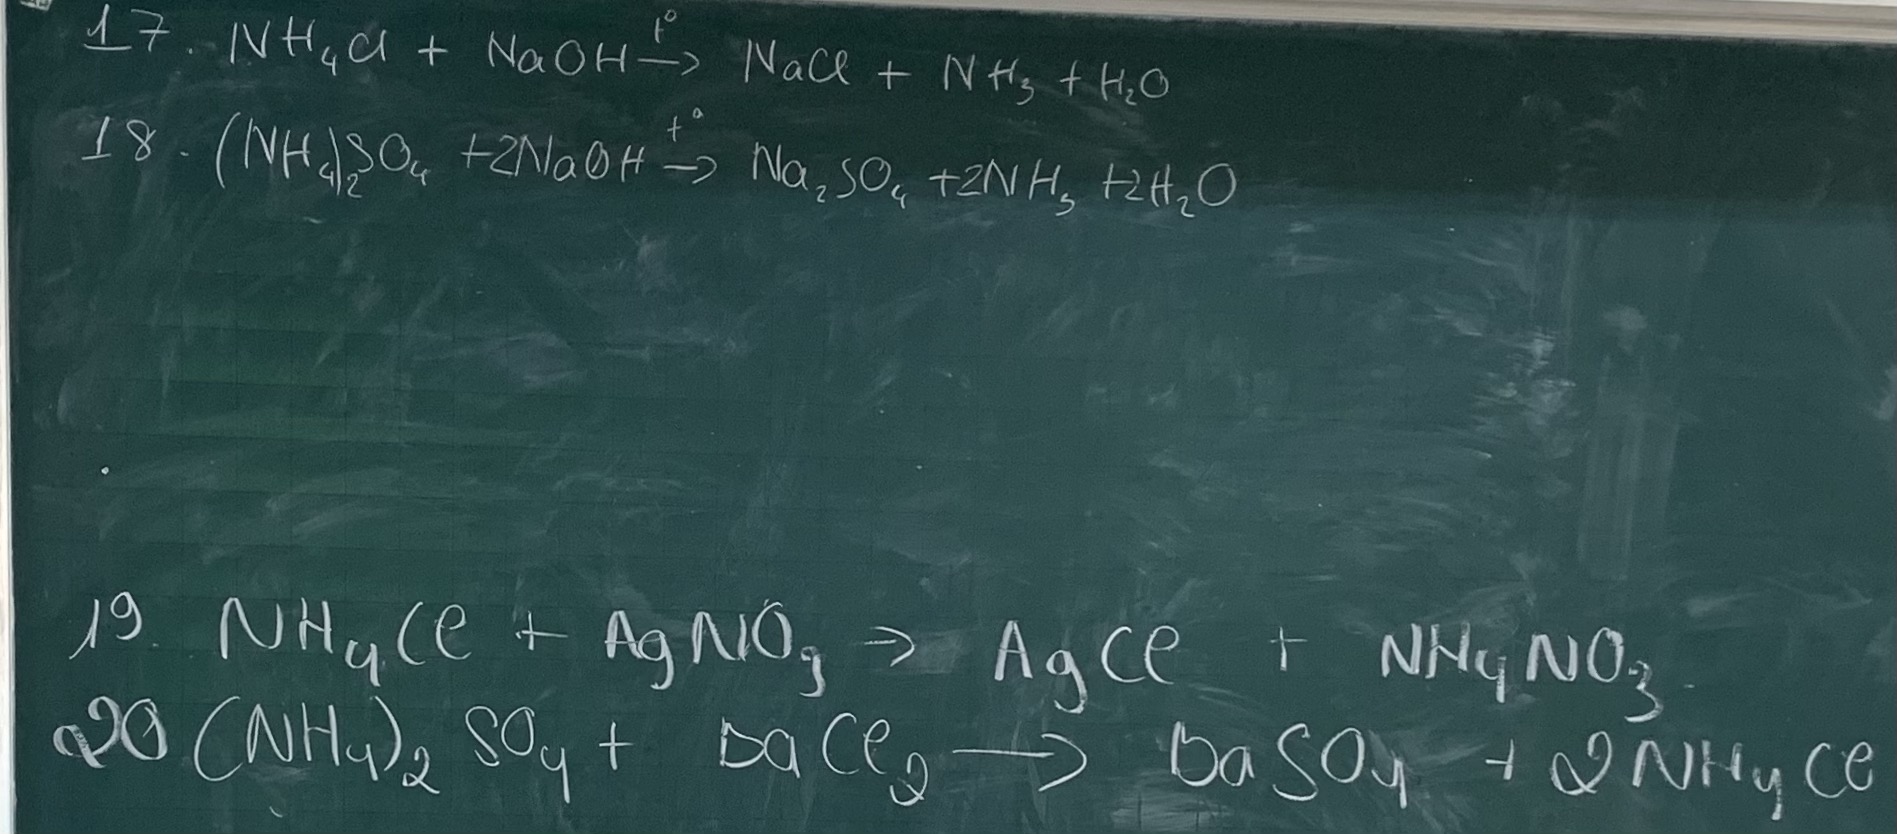 17. NH₄Cl + NaOH →(t°) NaCl + NH₃ + H₂O
18. (NH₄)₂SO₄ +2NaOH →(t°) Na₂SO₄ +2NH₃ +2H₂O
19. NH₄Cl + AgNO₃ → AgCl + NH₄NO₃
20 (NH₄)₂SO₄ + BaCl₂ → BaSO₄ + 2NH₄Cl